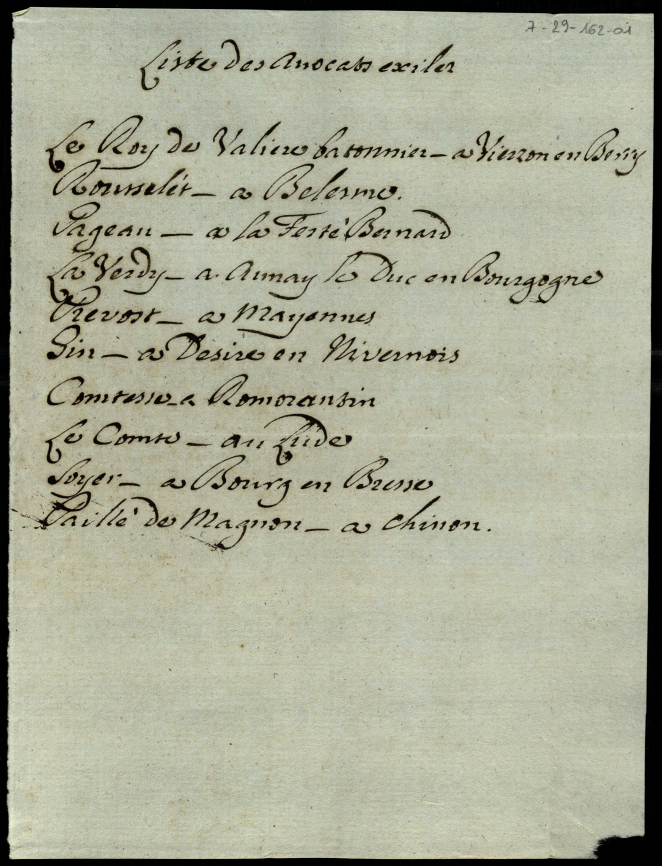 7-29-162-01
Liste des Avocats exiler
Le Roy de Valiere batonnier - a Vierzon en Berry
Rousselet - a Belesme.
Pageau - a la Ferté Bernard
La Verdy - a Aunay le Duc en Bourgogne
Prevost - a Mayennes
Gin - a Desire en Nivernois
Comtesse - a Romorantin
Le Comte - au Lude
Soyer - a Bourg en Bresse
Paillé de Magnon - a Chinon.